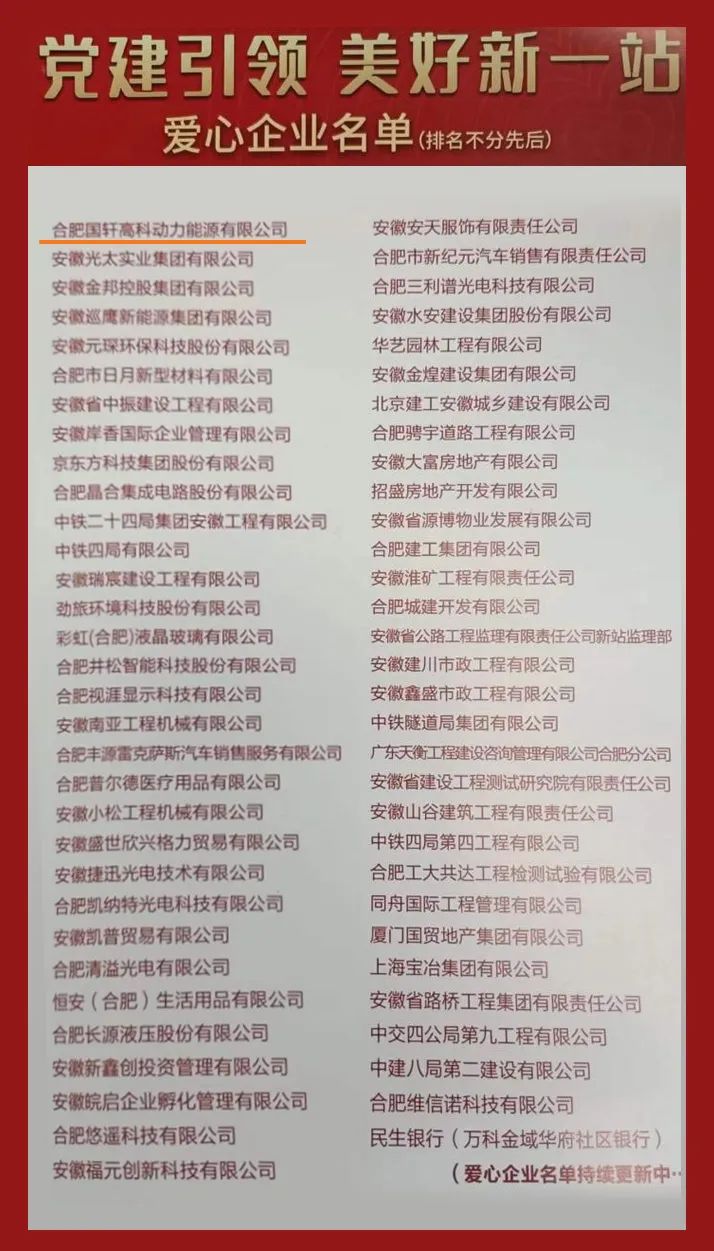 党建引领 美好新一站
爱心企业名单(排名不分先后)
合肥国轩高科动力能源有限公司
安徽光太实业集团有限公司
安徽金邦控股集团有限公司
安徽巡鹰新能源集团有限公司
安徽元琛环保科技股份有限公司
合肥市日月新型材料有限公司
安徽省中振建设工程有限公司
安徽岸香国际企业管理有限公司
京东方科技集团股份有限公司
合肥晶合集成电路股份有限公司
中铁二十四局集团安徽工程有限公司
中铁四局有限公司
安徽瑞宸建设工程有限公司
劲旅环境科技股份有限公司
彩虹(合肥)液晶玻璃有限公司
合肥井松智能科技股份有限公司
合肥视涯显示科技有限公司
安徽南亚工程机械有限公司
合肥丰源雷克萨斯汽车销售服务有限公司
合肥普尔德医疗用品有限公司
安徽小松工程机械有限公司
安徽盛世欣兴格力贸易有限公司
安徽捷迅光电技术有限公司
合肥凯纳特光电科技有限公司
安徽凯普贸易有限公司
合肥清溢光电有限公司
恒安（合肥）生活用品有限公司
合肥长源液压股份有限公司
安徽新鑫创投资管理有限公司
安徽皖启企业孵化管理有限公司
合肥悠遥科技有限公司
安徽福元创新科技有限公司
安徽安天服饰有限责任公司
合肥市新纪元汽车销售有限责任公司
合肥三利谱光电科技有限公司
安徽水安建设集团股份有限公司
华艺园林工程有限公司
安徽金煌建设集团有限公司
北京建工安徽城乡建设有限公司
合肥骋宇道路工程有限公司
安徽大富房地产有限公司
招盛房地产开发有限公司
安徽省源博物业发展有限公司
合肥建工集团有限公司
安徽淮矿工程有限责任公司
合肥城建开发有限公司
安徽省公路工程监理有限责任公司新站监理部
安徽建川市政工程有限公司
安徽鑫盛市政工程有限公司
中铁隧道局集团有限公司
广东天衡工程建设咨询管理有限公司合肥分公司
安徽省建设工程测试研究院有限责任公司
安徽山谷建筑工程有限责任公司
中铁四局第四工程有限公司
合肥工大共达工程检测试验有限公司
同舟国际工程管理有限公司
厦门国贸地产集团有限公司
上海宝冶集团有限公司
安徽省路桥工程集团有限责任公司
中交四公局第九工程有限公司
中建八局第二建设有限公司
合肥维信诺科技有限公司
民生银行（万科金域华府社区银行）
（爱心企业名单持续更新中··